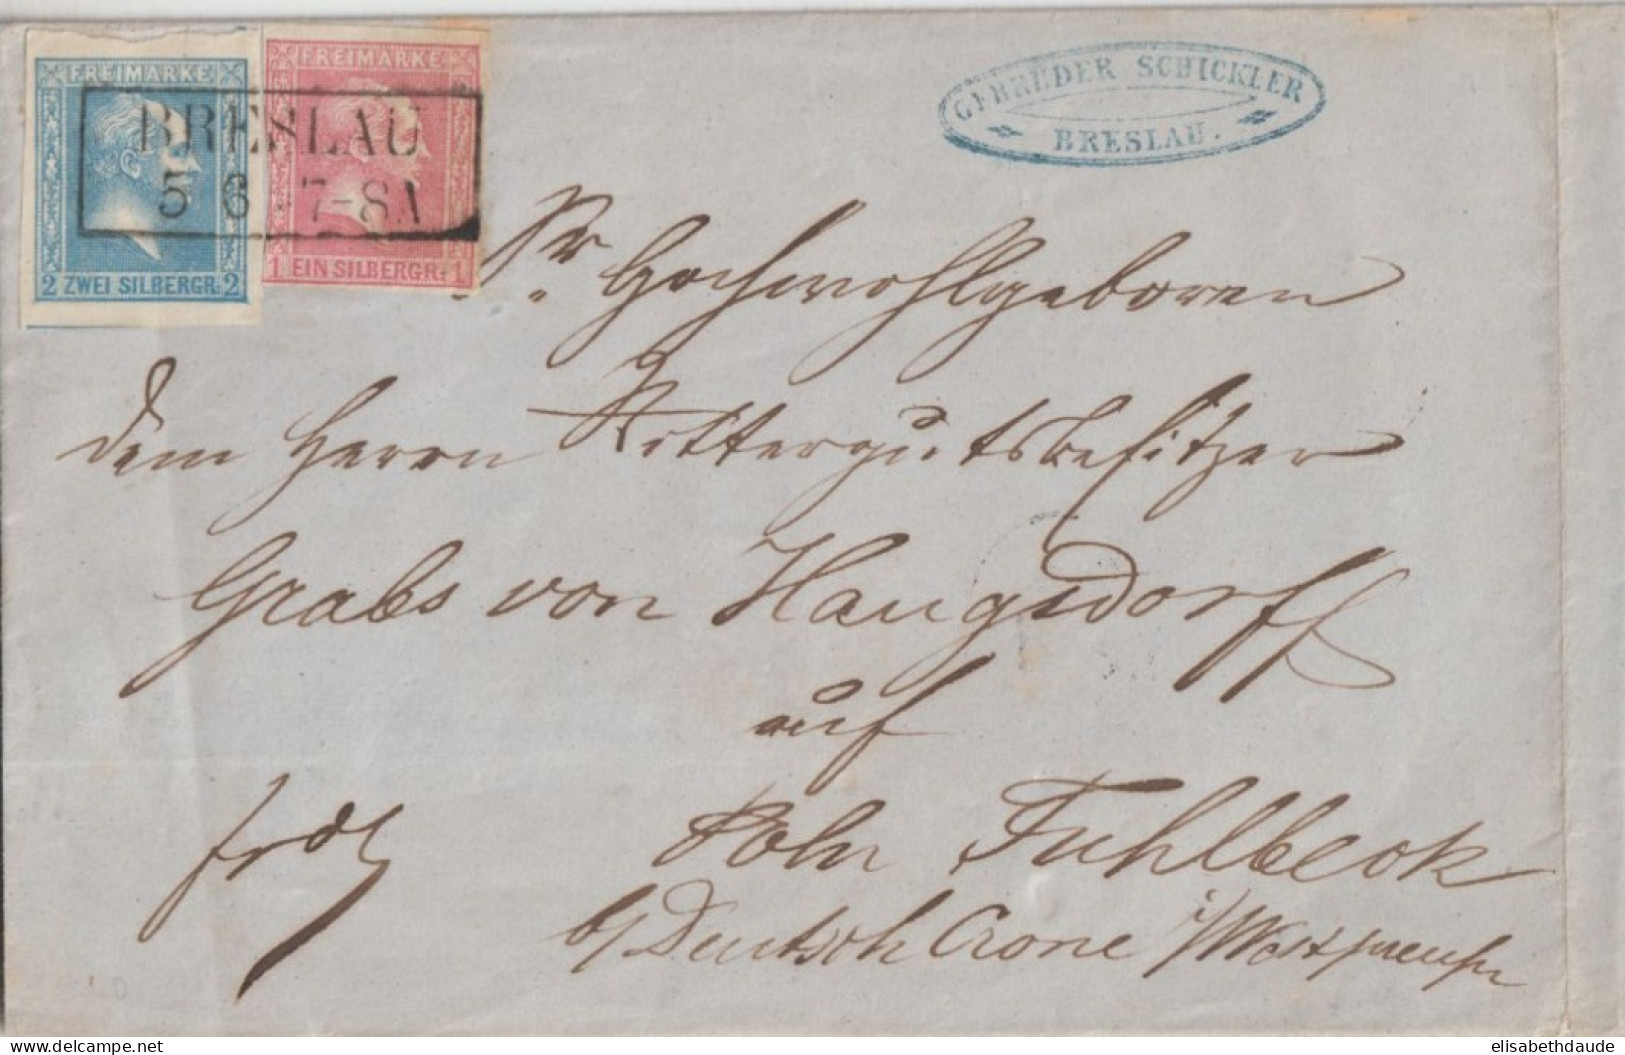 FREIMARKE
2 ZWEI SILBERGR: 2
FREIMARKE
1 EIN SILBERGR: 1
BRESLAU
5 6 * 7-8A
GEBRÜDER SCHICKLER
BRESLAU.
Sr. Hochwohlgeboren
dem Herrn Rittergutsbesitzer
Grabs von Haugsdorf
auf
frei
Poln Fuhlbeck
b/ Deutsch Crone i/ Westpreußen
www.elisabethdaude